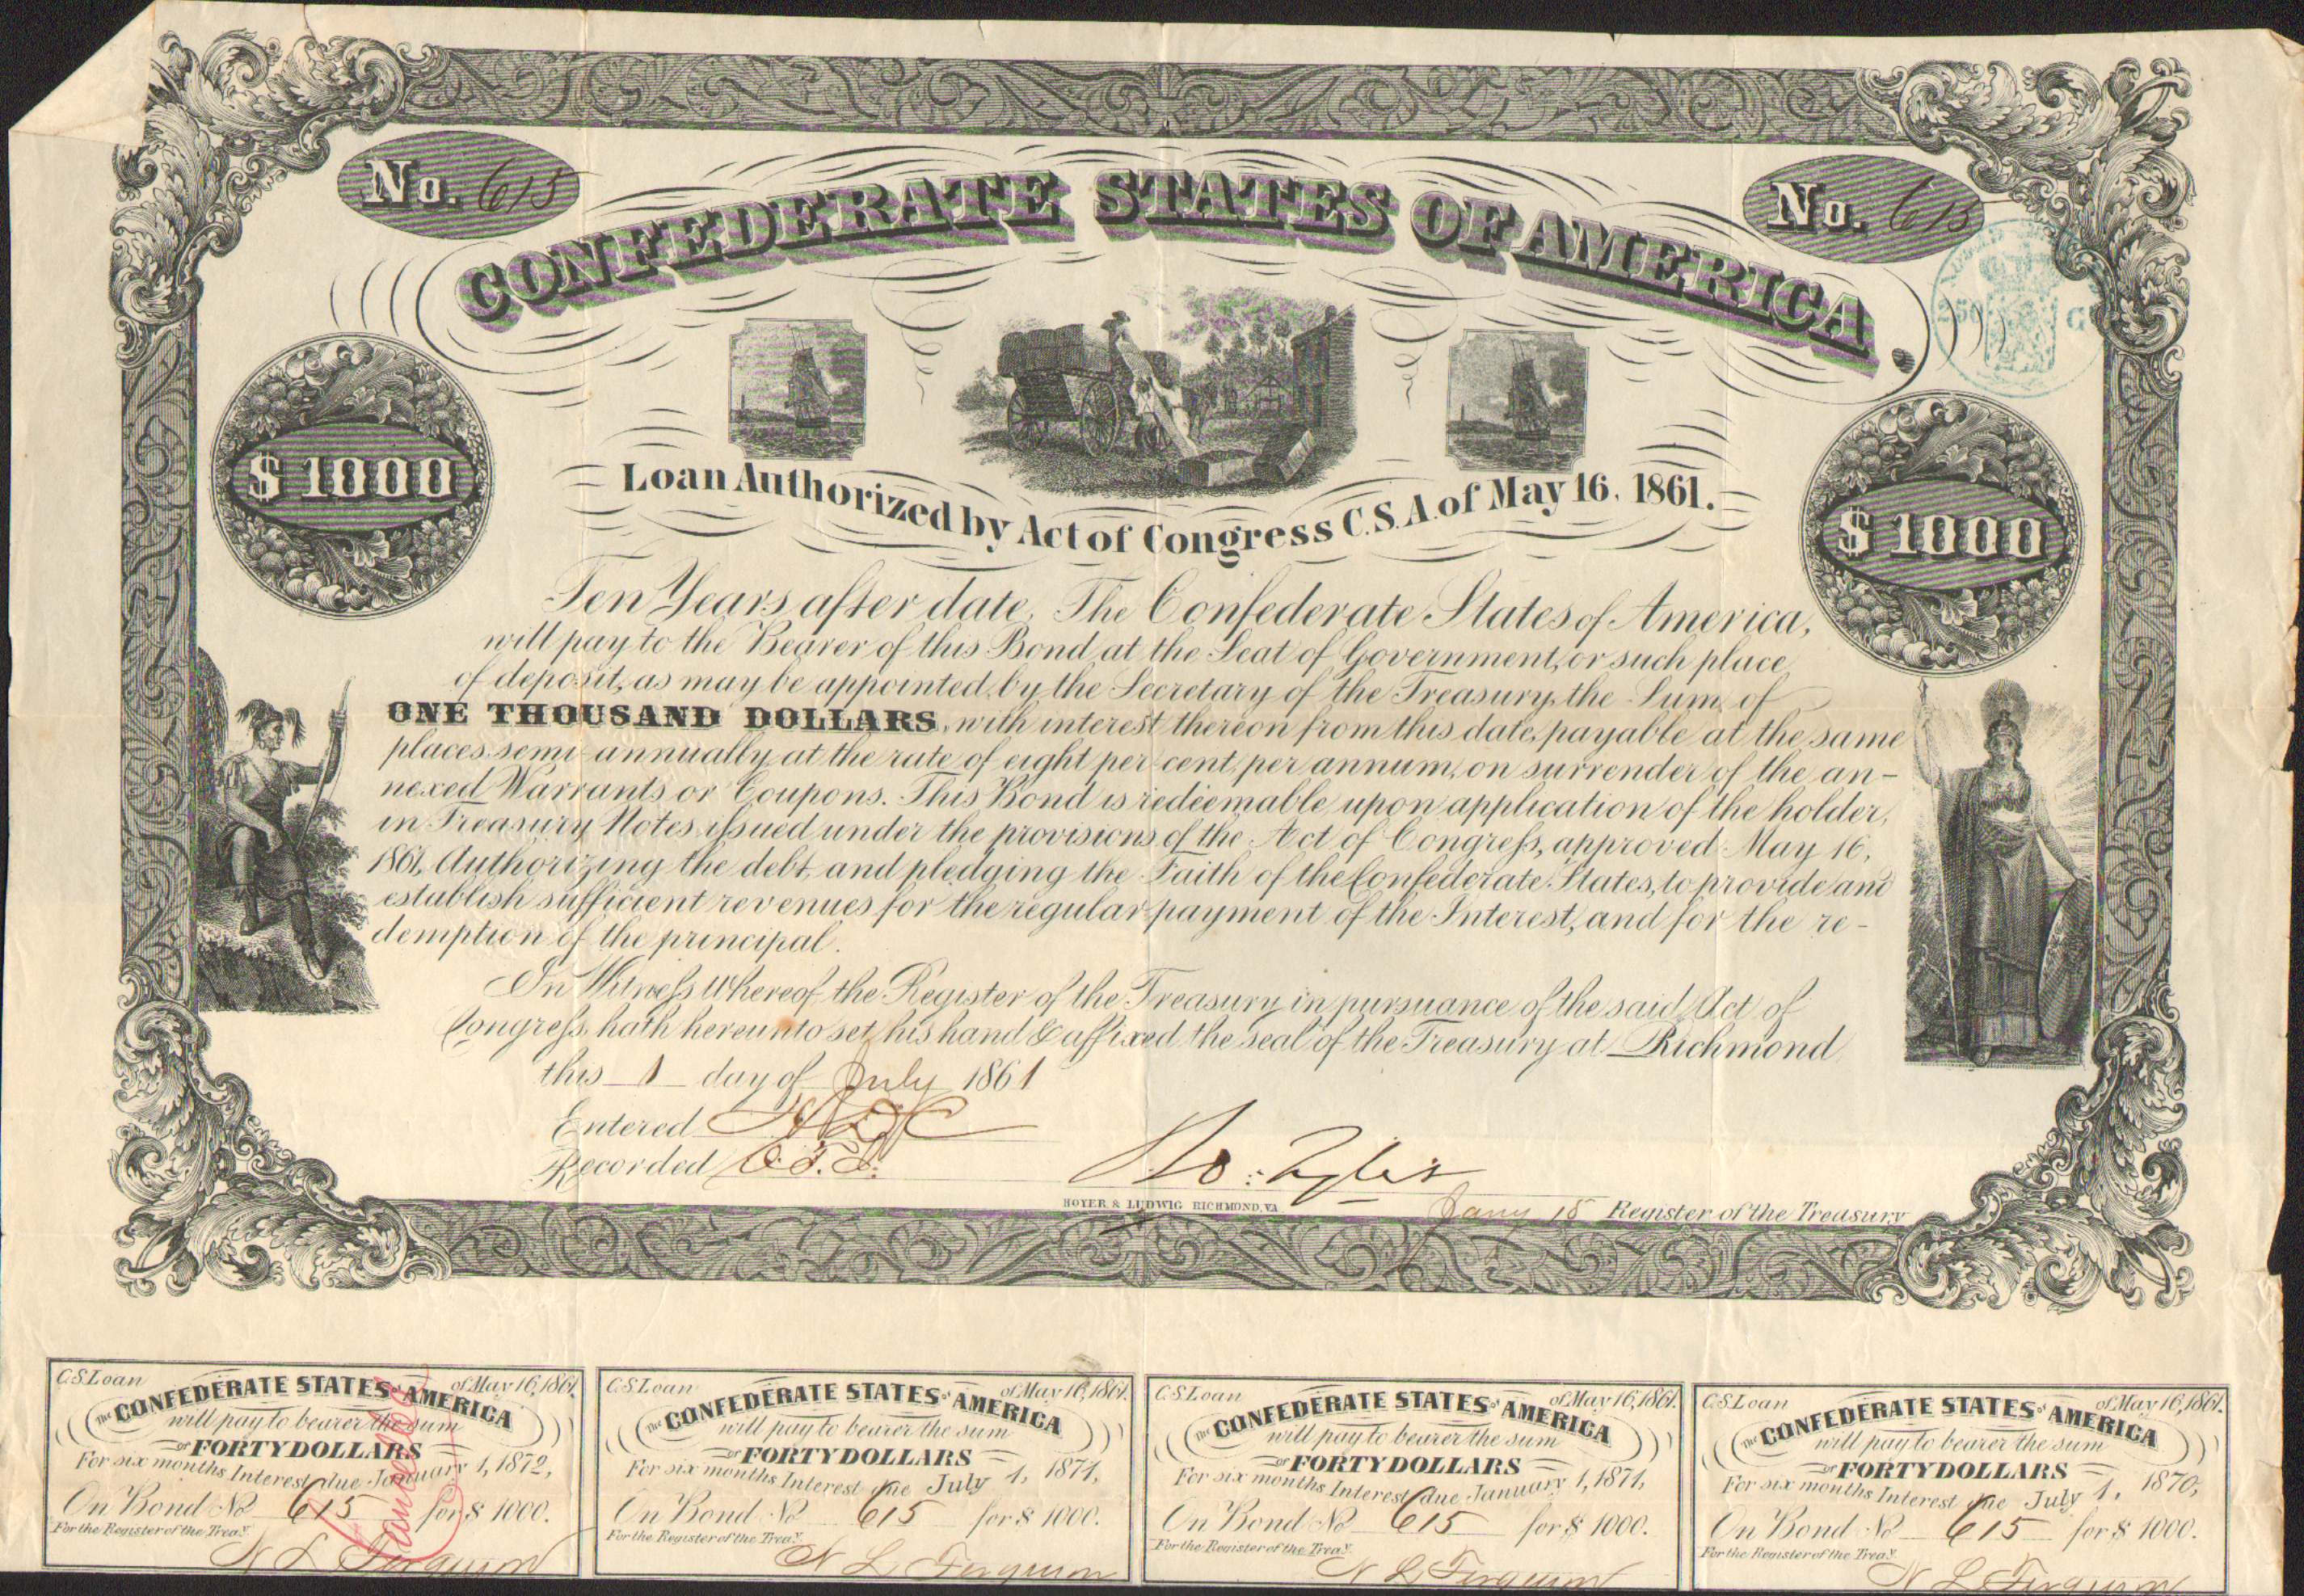 No. 615
No. 615
CONFEDERATE STATES OF AMERICA.
250 G
$1000
$1000
Loan Authorized by Act of Congress C.S.A. of May 16, 1861.
Ten Years after date, The Confederate States of America,
will pay to the Bearer of this Bond at the Seat of Government, or such place
of deposit, as may be appointed by the Secretary of the Treasury, the Sum of
ONE THOUSAND DOLLARS, with interest thereon from this date, payable at the same
places semi-annually at the rate of eight per cent, per annum, on surrender of the an-
nexed Warrants or Coupons. This Bond is redeemable upon application of the holder,
in Treasury Notes issued under the provisions of the Act of Congress, approved May 16,
1861, Authorizing the debt, and pledging the Faith of the Confederate States, to provide and
establish sufficient revenues for the regular payment of the Interest, and for the re-
demption of the principal.
In Witness Whereof the Register of the Treasury in pursuance of the said Act of
Congress, hath hereunto set his hand & affixed the seal of the Treasury at Richmond
this 1 day of July 1861
Entered
Recorded
Ro: Tyler
HOYER & LUDWIG RICHMOND, VA
Jany 15 Register of the Treasury
C.S. Loan of May 16, 1861.
The CONFEDERATE STATES OF AMERICA
will pay to bearer the sum
OF FORTY DOLLARS
For six months Interest due January 1, 1872,
On Bond No 615 for $ 1000.
For the Register of the Treay.
N L Ferguson
Cancelled
C.S. Loan of May 16, 1861.
The CONFEDERATE STATES OF AMERICA
will pay to bearer the sum
OF FORTY DOLLARS
For six months Interest due July 1, 1871,
On Bond No 615 for $ 1000.
For the Register of the Treay.
N L Ferguson
C.S. Loan of May 16, 1861.
The CONFEDERATE STATES OF AMERICA
will pay to bearer the sum
OF FORTY DOLLARS
For six months Interest due January 1, 1871,
On Bond No 615 for $ 1000.
For the Register of the Treay.
N L Ferguson
C.S. Loan of May 16, 1861.
The CONFEDERATE STATES OF AMERICA
will pay to bearer the sum
OF FORTY DOLLARS
For six months Interest due July 1, 1870,
On Bond No 615 for $ 1000.
For the Register of the Treay.
N L Ferguson